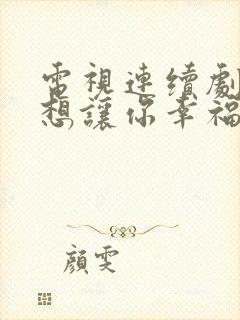 電視連續劇
想讓你幸福
顏雯